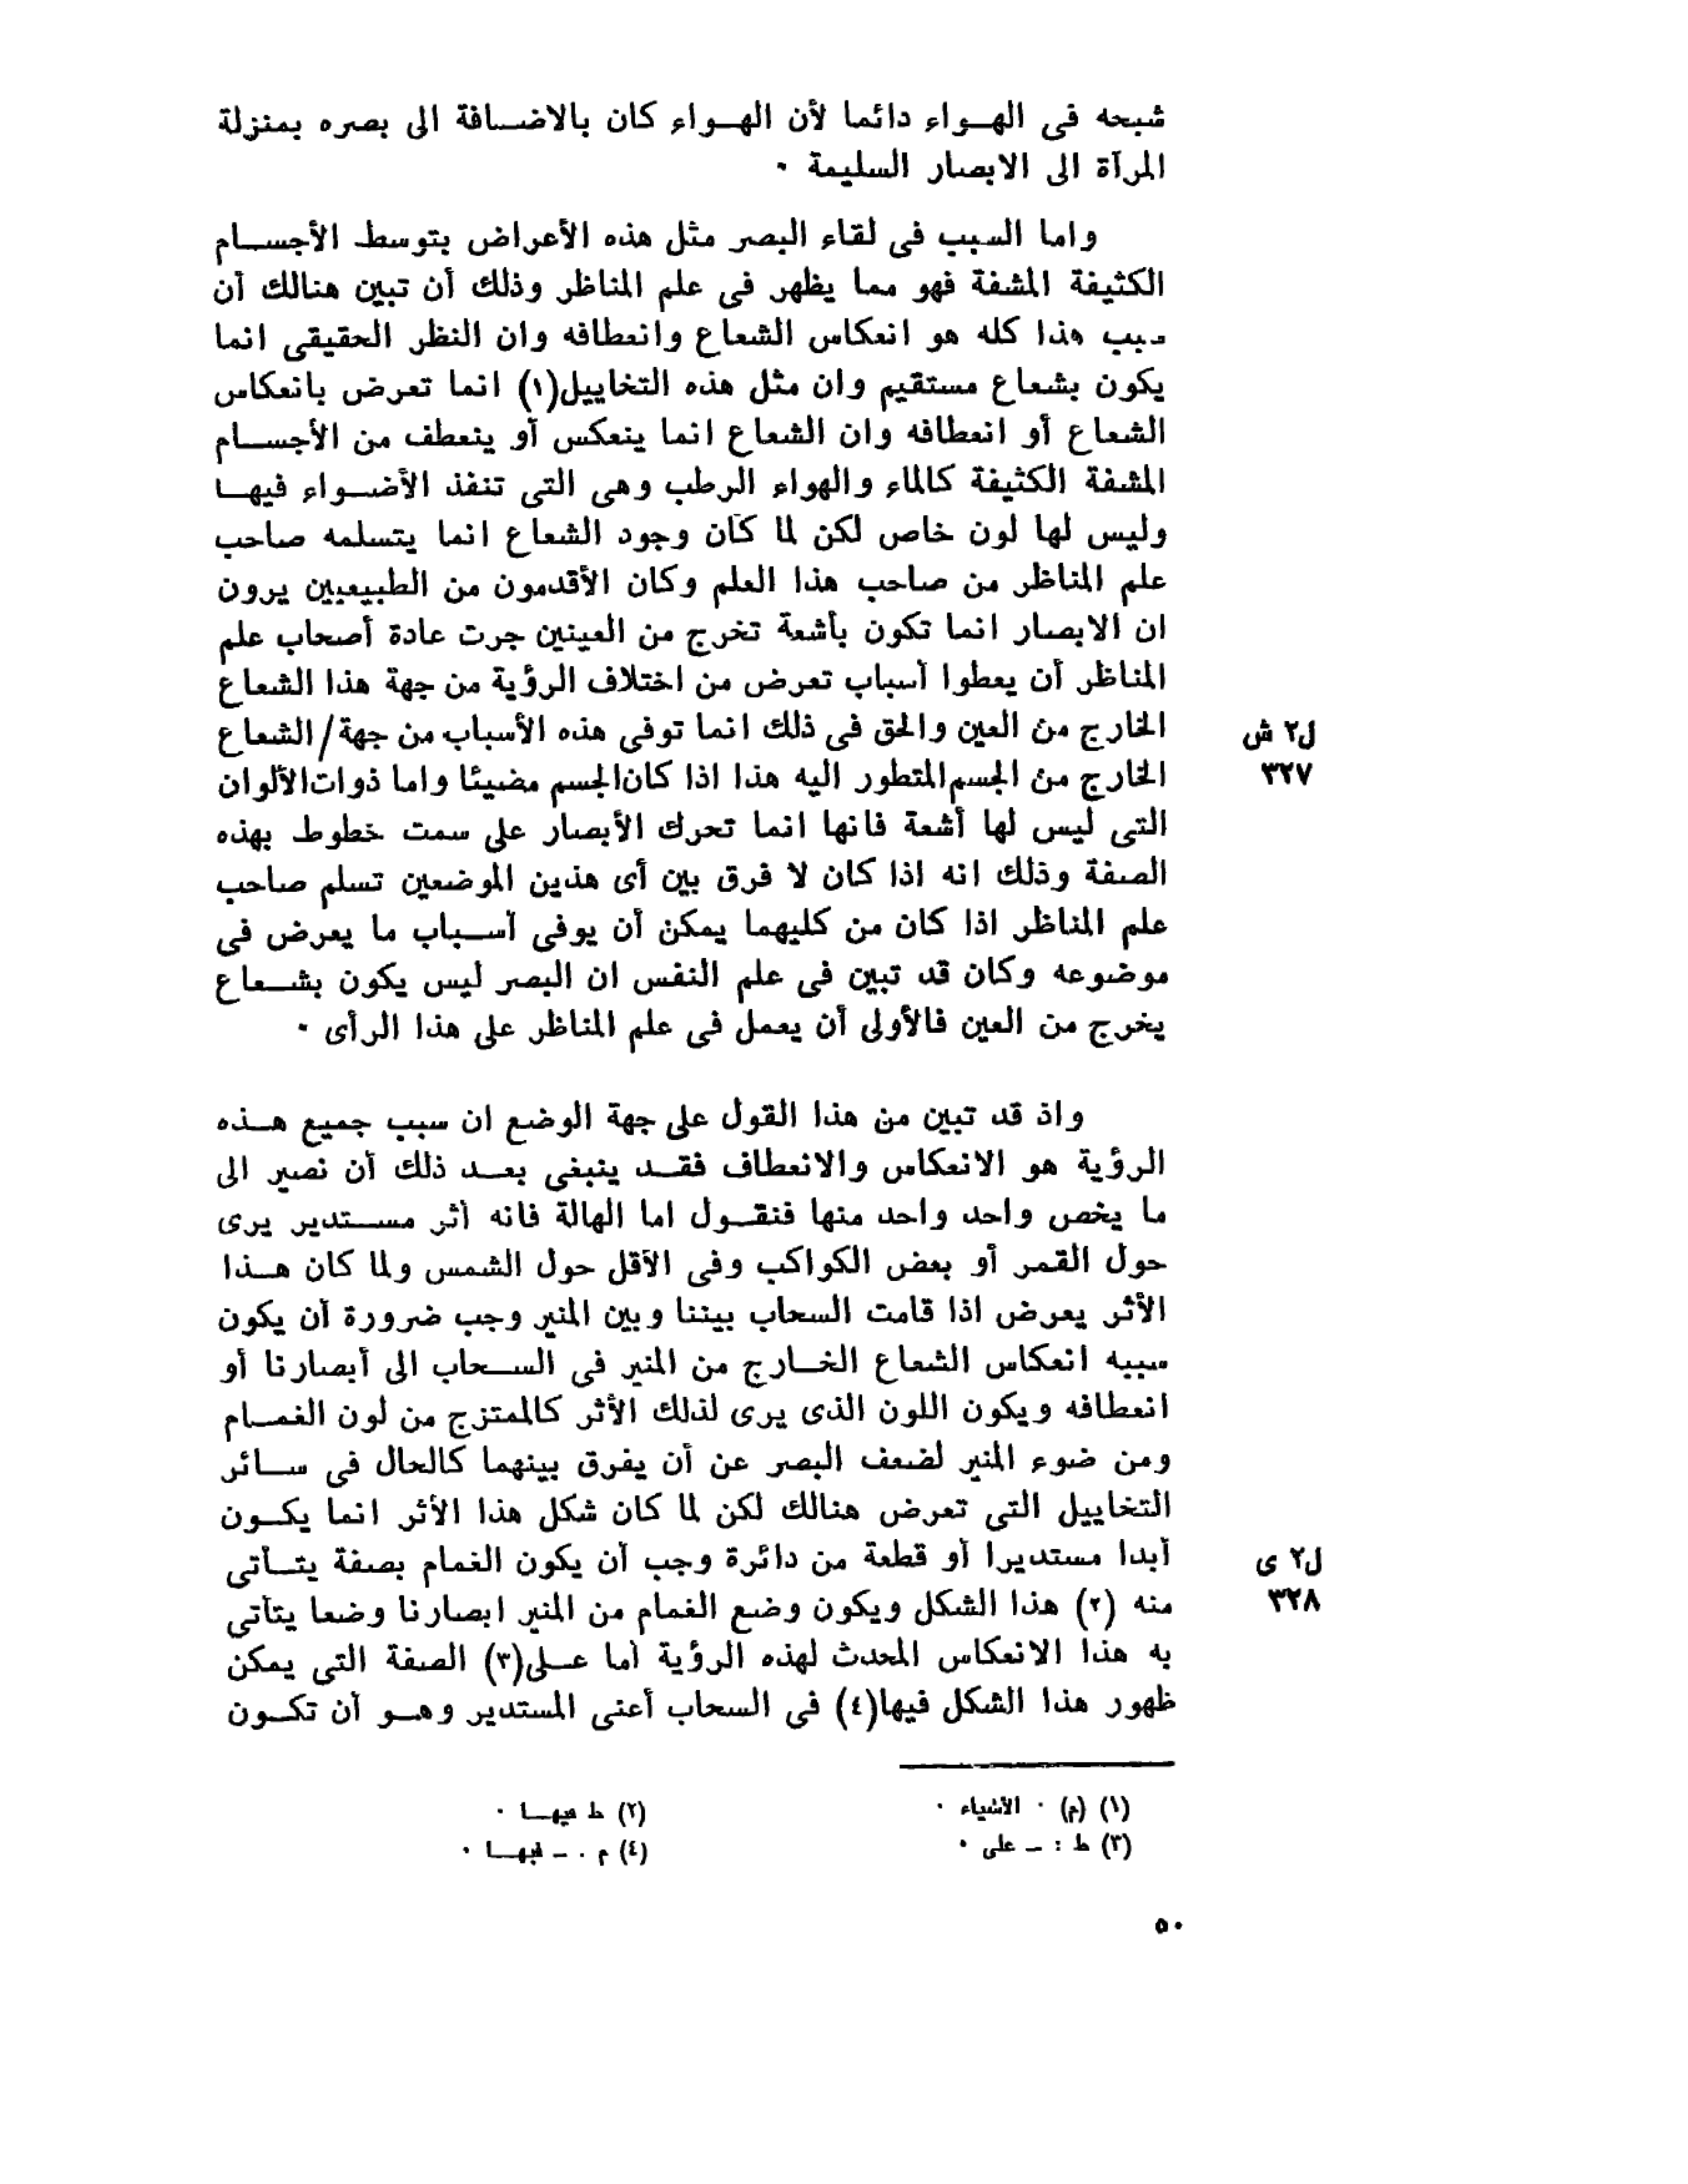 شبحه فى الهـواء دائما لأن الهـواء كان بالاضـافة الى بصره بمنزلة
المرآة الى الابصار السليمة ٠
واما السبب فى لقاء البصر مثل هذه الأعراض بتوسط الأجسـام
الكثيفة المشفة فهو مما يظهر فى علم المناظر وذلك أن تبين هنالك أن
سبب هذا كله هو انعكاس الشعاع وانعطافه وان النظر الحقيقى انما
يكون بشعاع مستقيم وان مثل هذه التخاييل(١) انما تعرض بانعكاس
الشعاع أو انعطافه وان الشعاع انما ينعكس أو ينعطف من الأجسـام
المشفة الكثيفة كالماء والهواء الرطب وهى التى تنفذ الأضـواء فيهـا
وليس لها لون خاص لكن لما كان وجود الشعاع انما يتسلمه صاحب
علم المناظر من صاحب هذا العلم وكان الأقدمون من الطبيعيين يرون
ان الابصار انما تكون بأشعة تخرج من العينين جرت عادة أصحاب علم
المناظر أن يعطوا أسباب تعرض من اختلاف الرؤية من جهة هذا الشعاع
الخارج من العين والحق فى ذلك انما توفى هذه الأسباب من جهة/الشعاع
ل٢ ش
الخارج من الجسم المتطور اليه هذا اذا كان الجسم مضيئا واما ذوات الألوان
٣٢٧
التى ليس لها أشعة فانها انما تحرك الأبصار على سمت خطوط بهذه
الصفة وذلك انه اذا كان لا فرق بين أى هذين الموضعين تسلم صاحب
علم المناظر اذا كان من كليهما يمكن أن يوفى أسـباب ما يعرض فى
موضوعه وكان قد تبين فى علم النفس ان البصر ليس يكون بشـعاع
يخرج من العين فالأولى أن يعمل فى علم المناظر على هذا الرأى ٠
واذ قد تبين من هذا القول على جهة الوضع ان سبب جميع هـذه
الرؤية هو الانعكاس والانعطاف فقـد ينبغى بعـد ذلك أن نصير الى
ما يخص واحد واحد منها فنقـول اما الهالة فانه أثر مسـتدير يرى
حول القمر أو بعض الكواكب وفى الأقل حول الشمس ولما كان هـذا
الأثر يعرض اذا قامت السحاب بيننا وبين المنير وجب ضرورة أن يكون
سببه انعكاس الشعاع الخـارج من المنير فى السـحاب الى أبصارنا أو
انعطافه ويكون اللون الذى يرى لذلك الأثر كالممتزج من لون الغمـام
ومن ضوء المنير لضعف البصر عن أن يفرق بينهما كالحال فى سـائر
التخاييل التى تعرض هنالك لكن لما كان شكل هذا الأثر انما يكـون
أبدا مستديرا أو قطعة من دائرة وجب أن يكون الغمام بصفة يتـأتى
ل٢ ى
منه (٢) هذا الشكل ويكون وضع الغمام من المنير ابصارنا وضعا يتأتى
٣٢٨
به هذا الانعكاس المحدث لهذه الرؤية أما عـلى(٣) الصفة التى يمكن
ظهور هذا الشكل فيها(٤) فى السحاب أعنى المستدير وهـو أن تكـون
(١) (م) ٠ الأشياء ٠
(٢) ط فيهـا ٠
(٣) ط : ـ على ٠
(٤) م ٠ ـ فيهـا ٠
٥٠